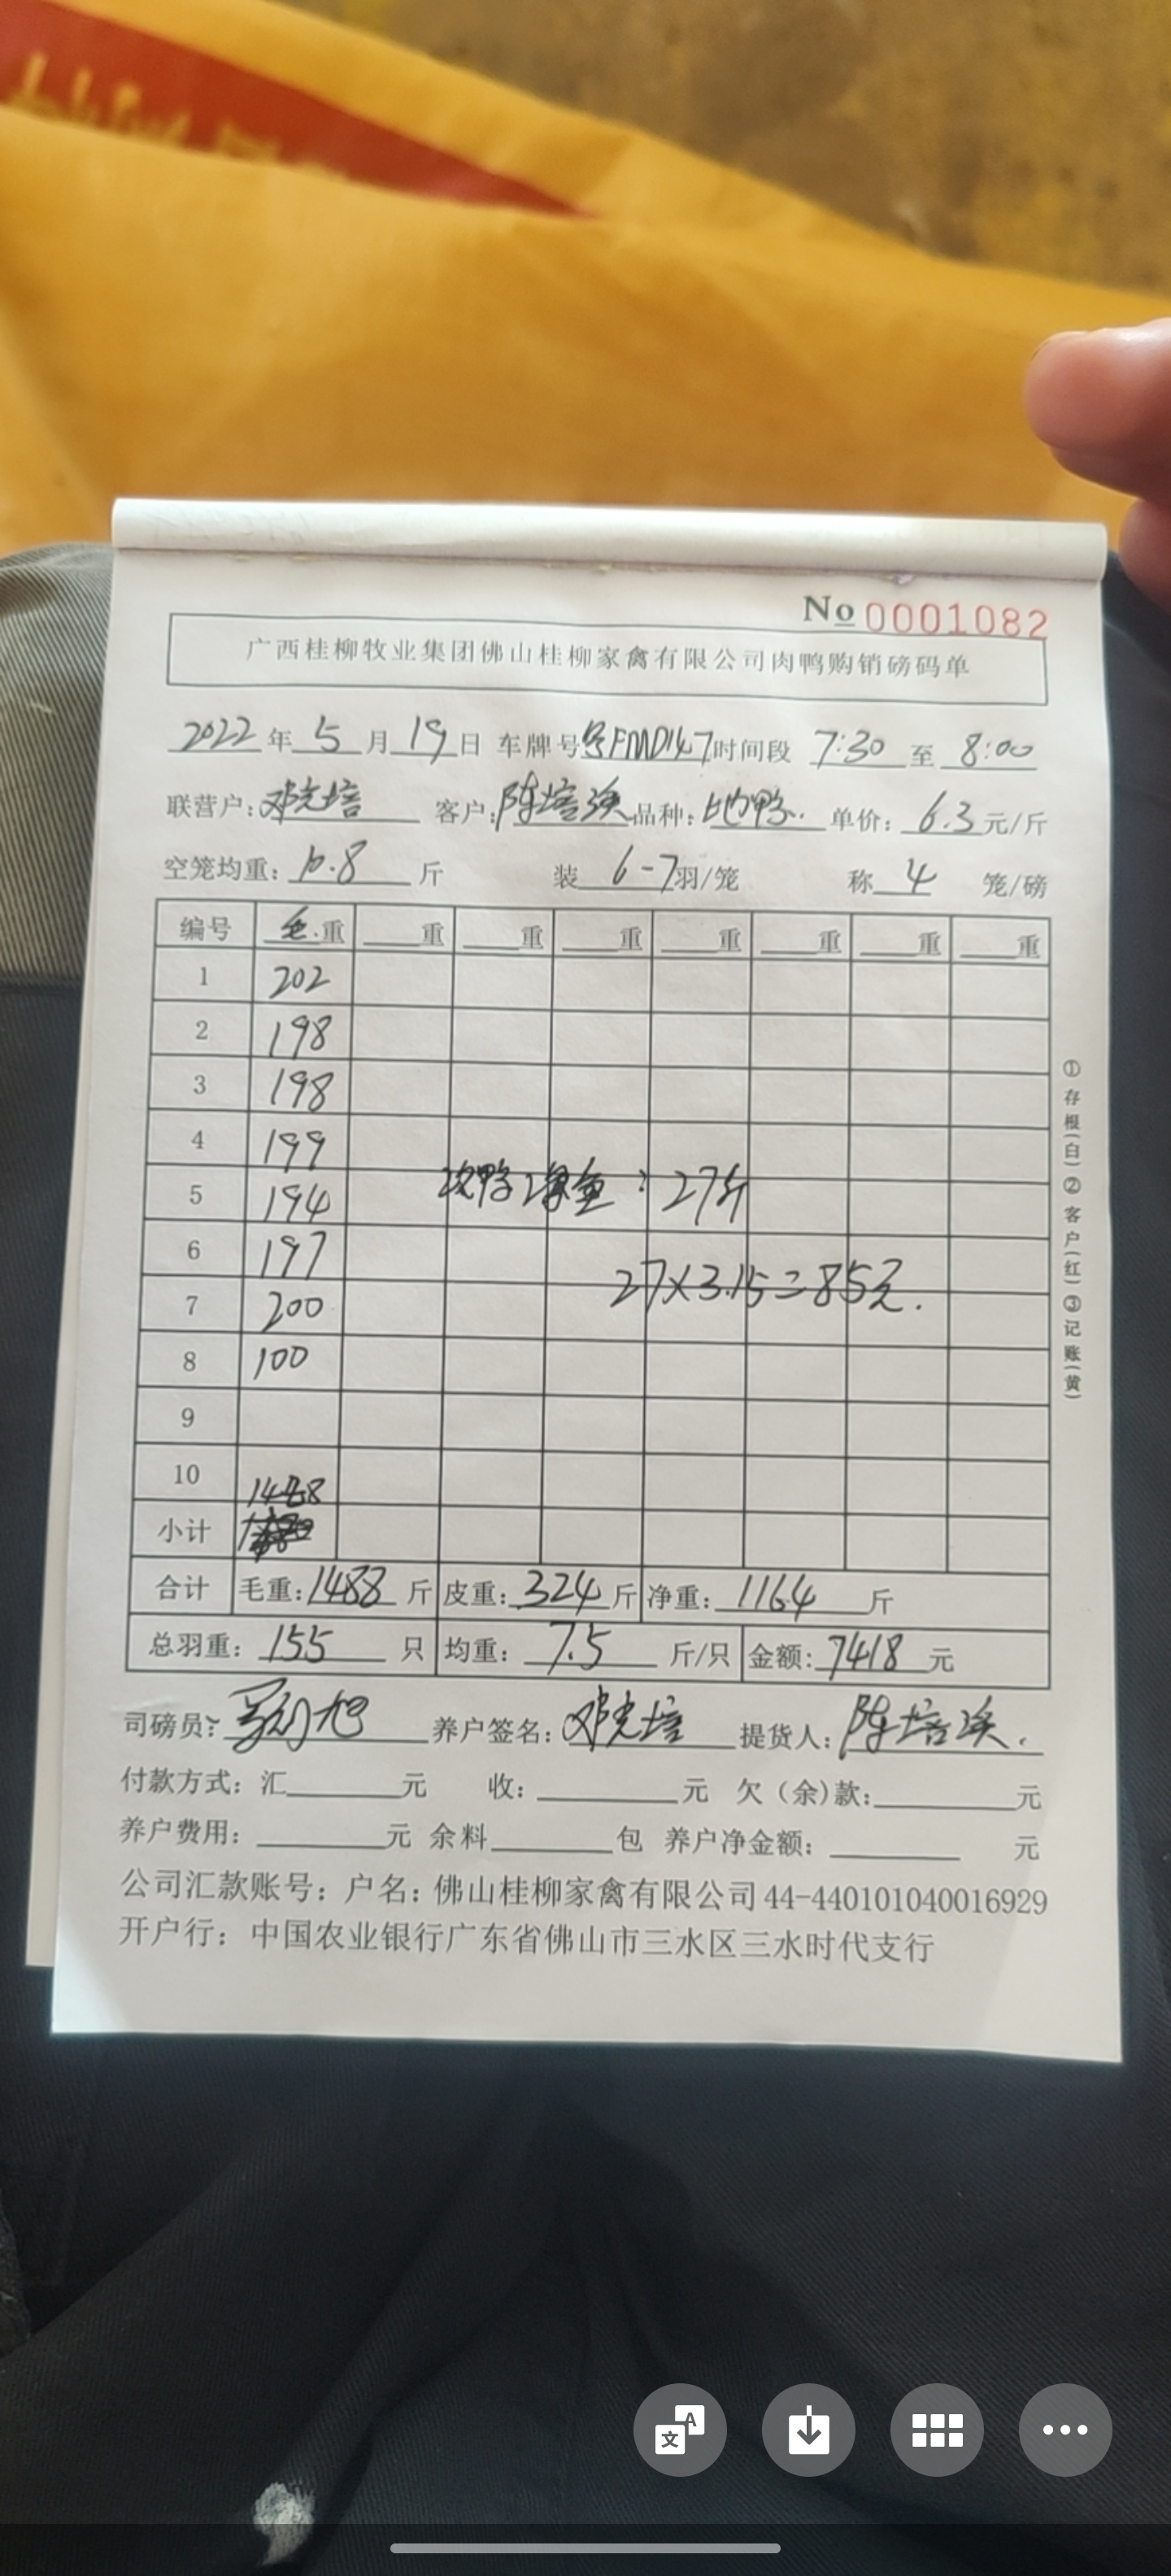 No 0001082
广西桂柳牧业集团佛山桂柳家禽有限公司肉鸭购销磅码单
2022年 5 月 19 日 车牌号 粤FMD147 时间段 7:30 至 8:00
联营户: 邓光培 客户: 陈培 品种: 地鸭. 单价: 6.3 元/斤
空笼均重: 10.8 斤 装 6-7 羽/笼 称 4 笼/磅
编号 毛.重 重 重 重 重 重 重 重
1 202
2 198
3 198
4 199
5 194
次鸭净重: 27斤
6 197
27×3.15=85元.
7 200
8 100
9
10
1488
小计
合计 毛重: 1488 斤 皮重: 324 斤 净重: 1164 斤
总羽重: 155 只 均重: 7.5 斤/只 金额: 7418 元
司磅员: 养户签名: 邓光培 提货人: 陈培
付款方式: 汇 元 收: 元 欠（余）款: 元
养户费用: 元 余料 包 养户净金额: 元
公司汇款账号: 户名: 佛山桂柳家禽有限公司 44-440101040016929
开户行: 中国农业银行广东省佛山市三水区三水时代支行
①存根(白)②客户(红)③记账(黄)